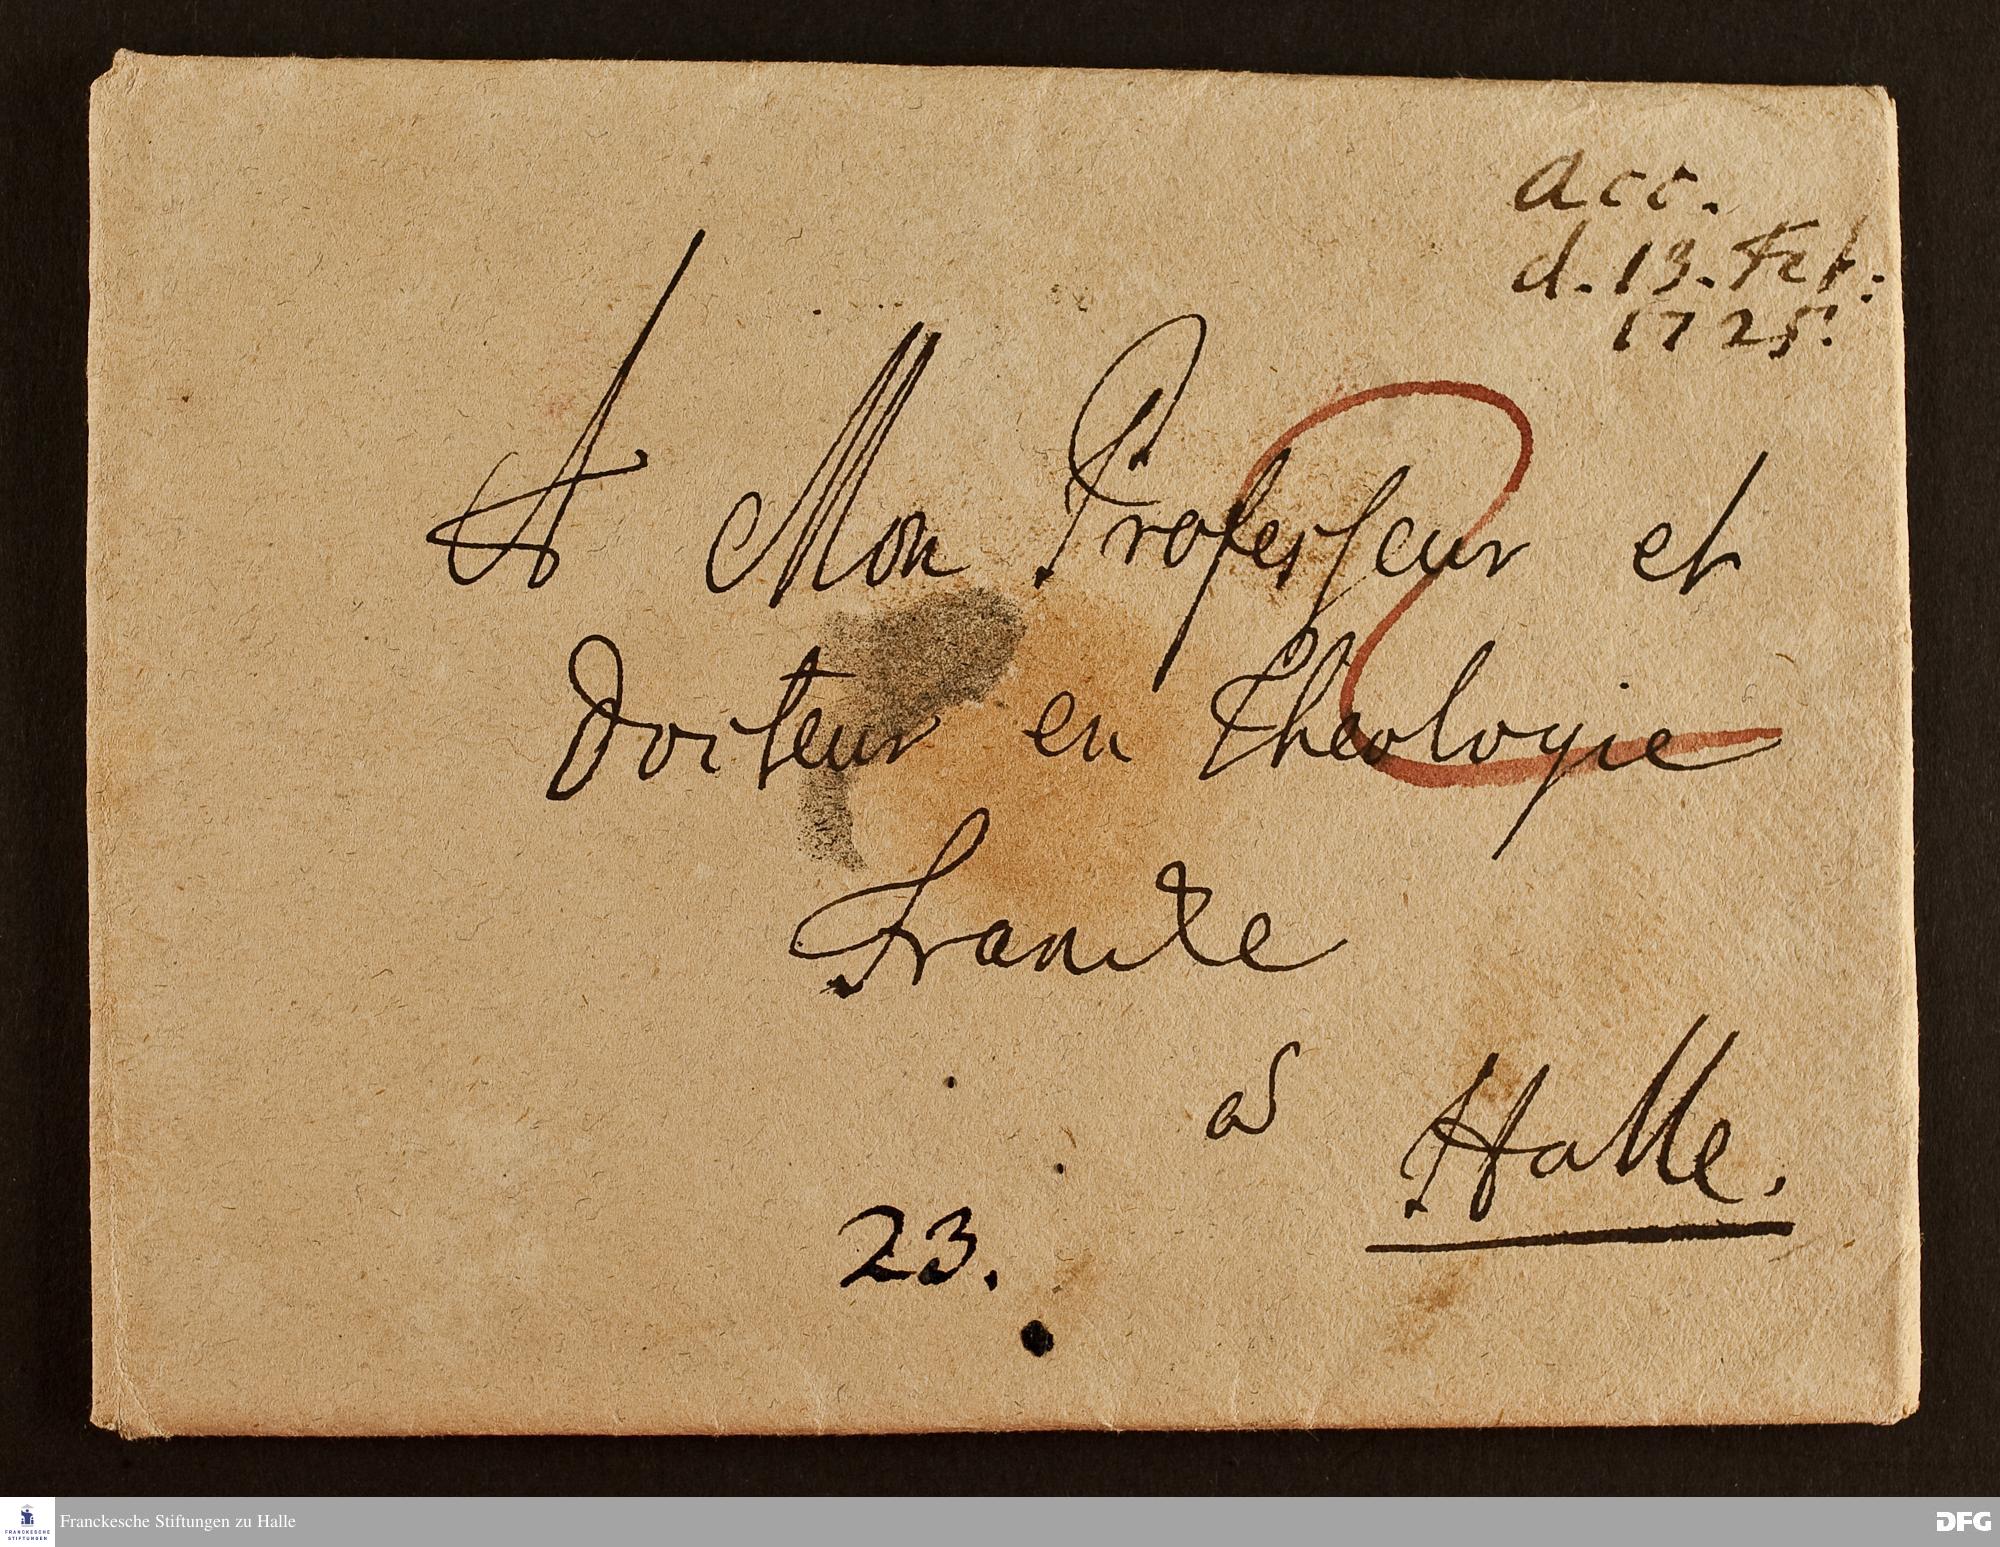 acc.
d. 13. Feb:
1725.
A Mon Professeur et
Docteur en Theologie
Francke
à Halle.
23.
FRANCKESCHE
STIFTUNGEN
Franckesche Stiftungen zu Halle
DFG